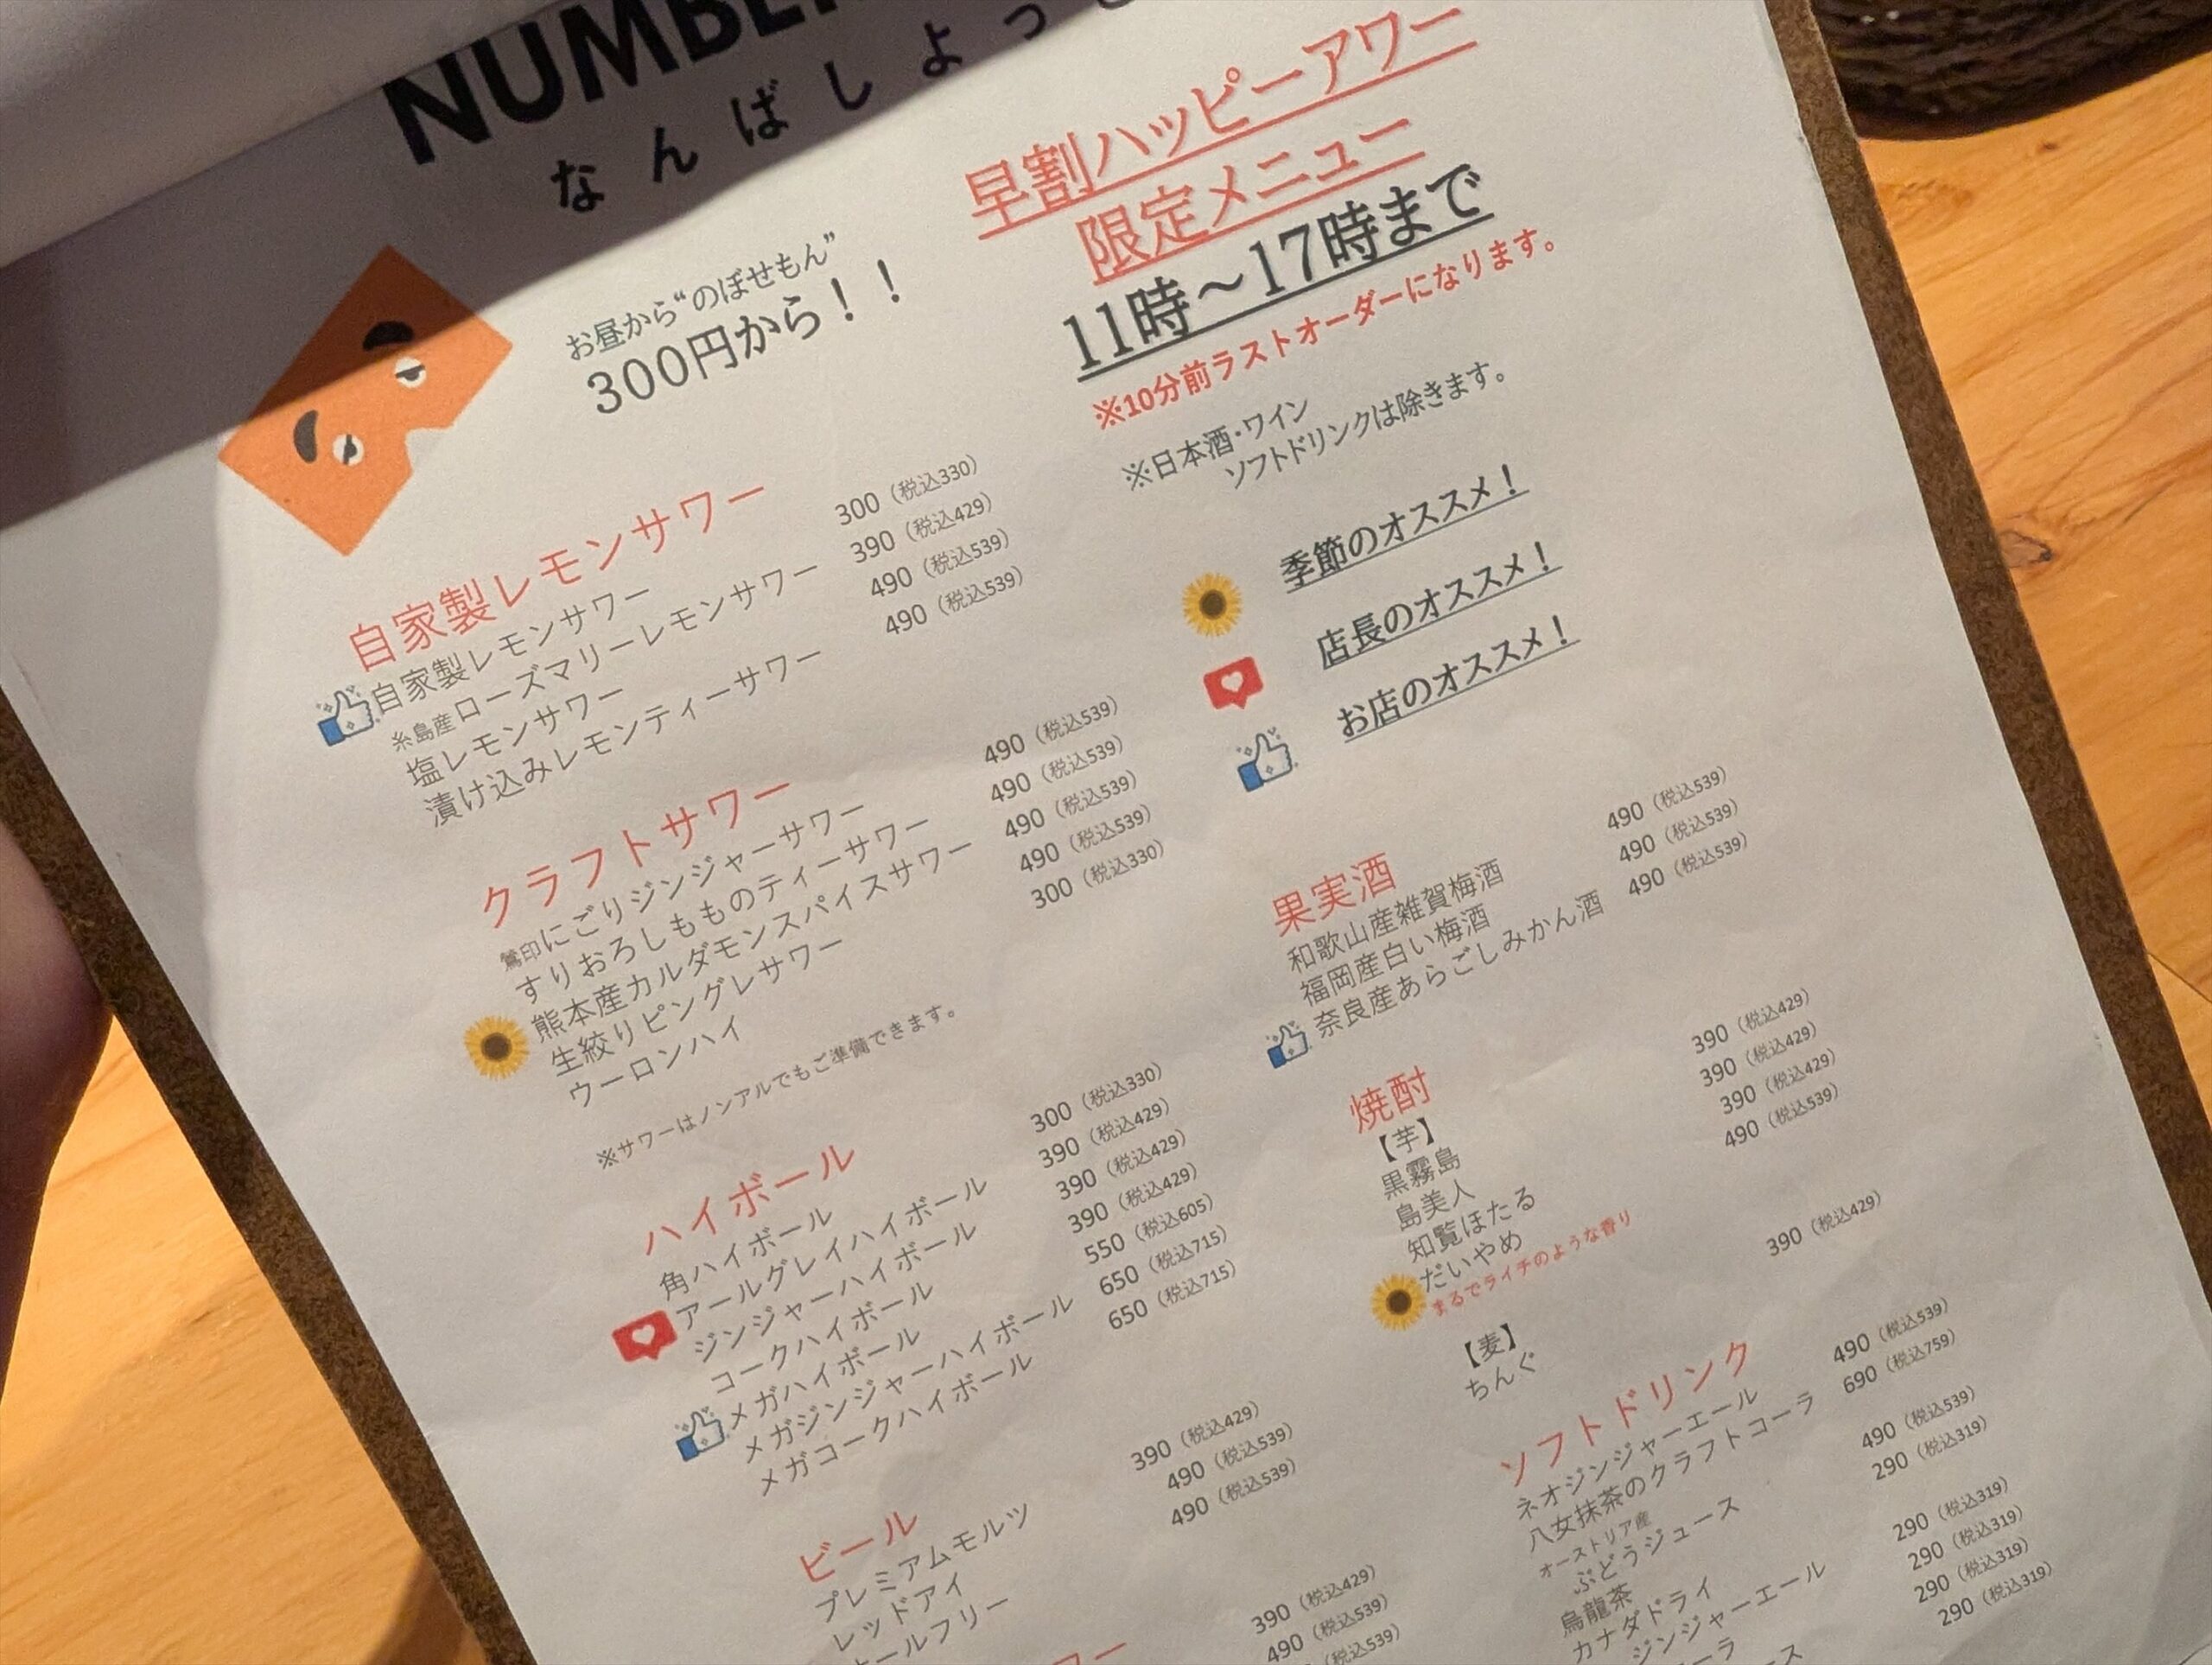 NUMBER
なんばしよっと
お昼から“のぼせもん”
300円から！！
早割ハッピーアワー
限定メニュー
11時～17時まで
※10分前ラストオーダーになります。
※日本酒・ワイン
ソフトドリンクは除きます。
季節のオススメ！
店長のオススメ！
お店のオススメ！
自家製レモンサワー
自家製レモンサワー 300（税込330）
糸島産ローズマリーレモンサワー 390（税込429）
塩レモンサワー 490（税込539）
漬け込みレモンティーサワー 490（税込539）
クラフトサワー
鶯印にごりジンジャーサワー 490（税込539）
すりおろしもものティーサワー 490（税込539）
熊本産カルダモンスパイスサワー 490（税込539）
生絞りピングレサワー 490（税込539）
ウーロンハイ 300（税込330）
※サワーはノンアルでもご準備できます。
ハイボール
角ハイボール 300（税込330）
アールグレイハイボール 390（税込429）
ジンジャーハイボール 390（税込429）
コークハイボール 390（税込429）
メガハイボール 550（税込605）
メガジンジャーハイボール 650（税込715）
メガコークハイボール 650（税込715）
ビール
プレミアムモルツ 390（税込429）
レッドアイ 490（税込539）
ールフリー 490（税込539）
ワー
390（税込429）
490（税込539）
（税込539）
果実酒
和歌山産雑賀梅酒 490（税込539）
福岡産白い梅酒 490（税込539）
奈良産あらごしみかん酒 490（税込539）
焼酎
【芋】
黒霧島 390（税込429）
島美人 390（税込429）
知覧ほたる 390（税込429）
だいやめ 490（税込539）
まるでライチのような香り
【麦】
ちんぐ 390（税込429）
ソフトドリンク
ネオジンジャーエール 490（税込539）
八女抹茶のクラフトコーラ 690（税込759）
オーストリア産
ぶどうジュース 490（税込539）
烏龍茶 290（税込319）
カナダドライ
ジンジャーエール 290（税込319）
ーラ 290（税込319）
ース 290（税込319）
290（税込319）